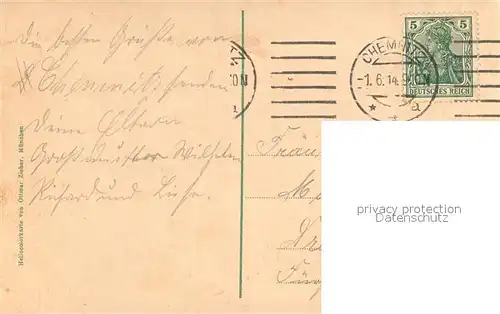 Die besten Grüße von
Chemnitz senden
Deine Eltern
Großmutter Wilhelm
Richard und Liese.
Heliocolorkarte von Ottmar Zieher, München
CHEMNITZ
-1.6.14.
a
5 5
DEUTSCHES REICH
Fräu
privacy protection
Datenschutz